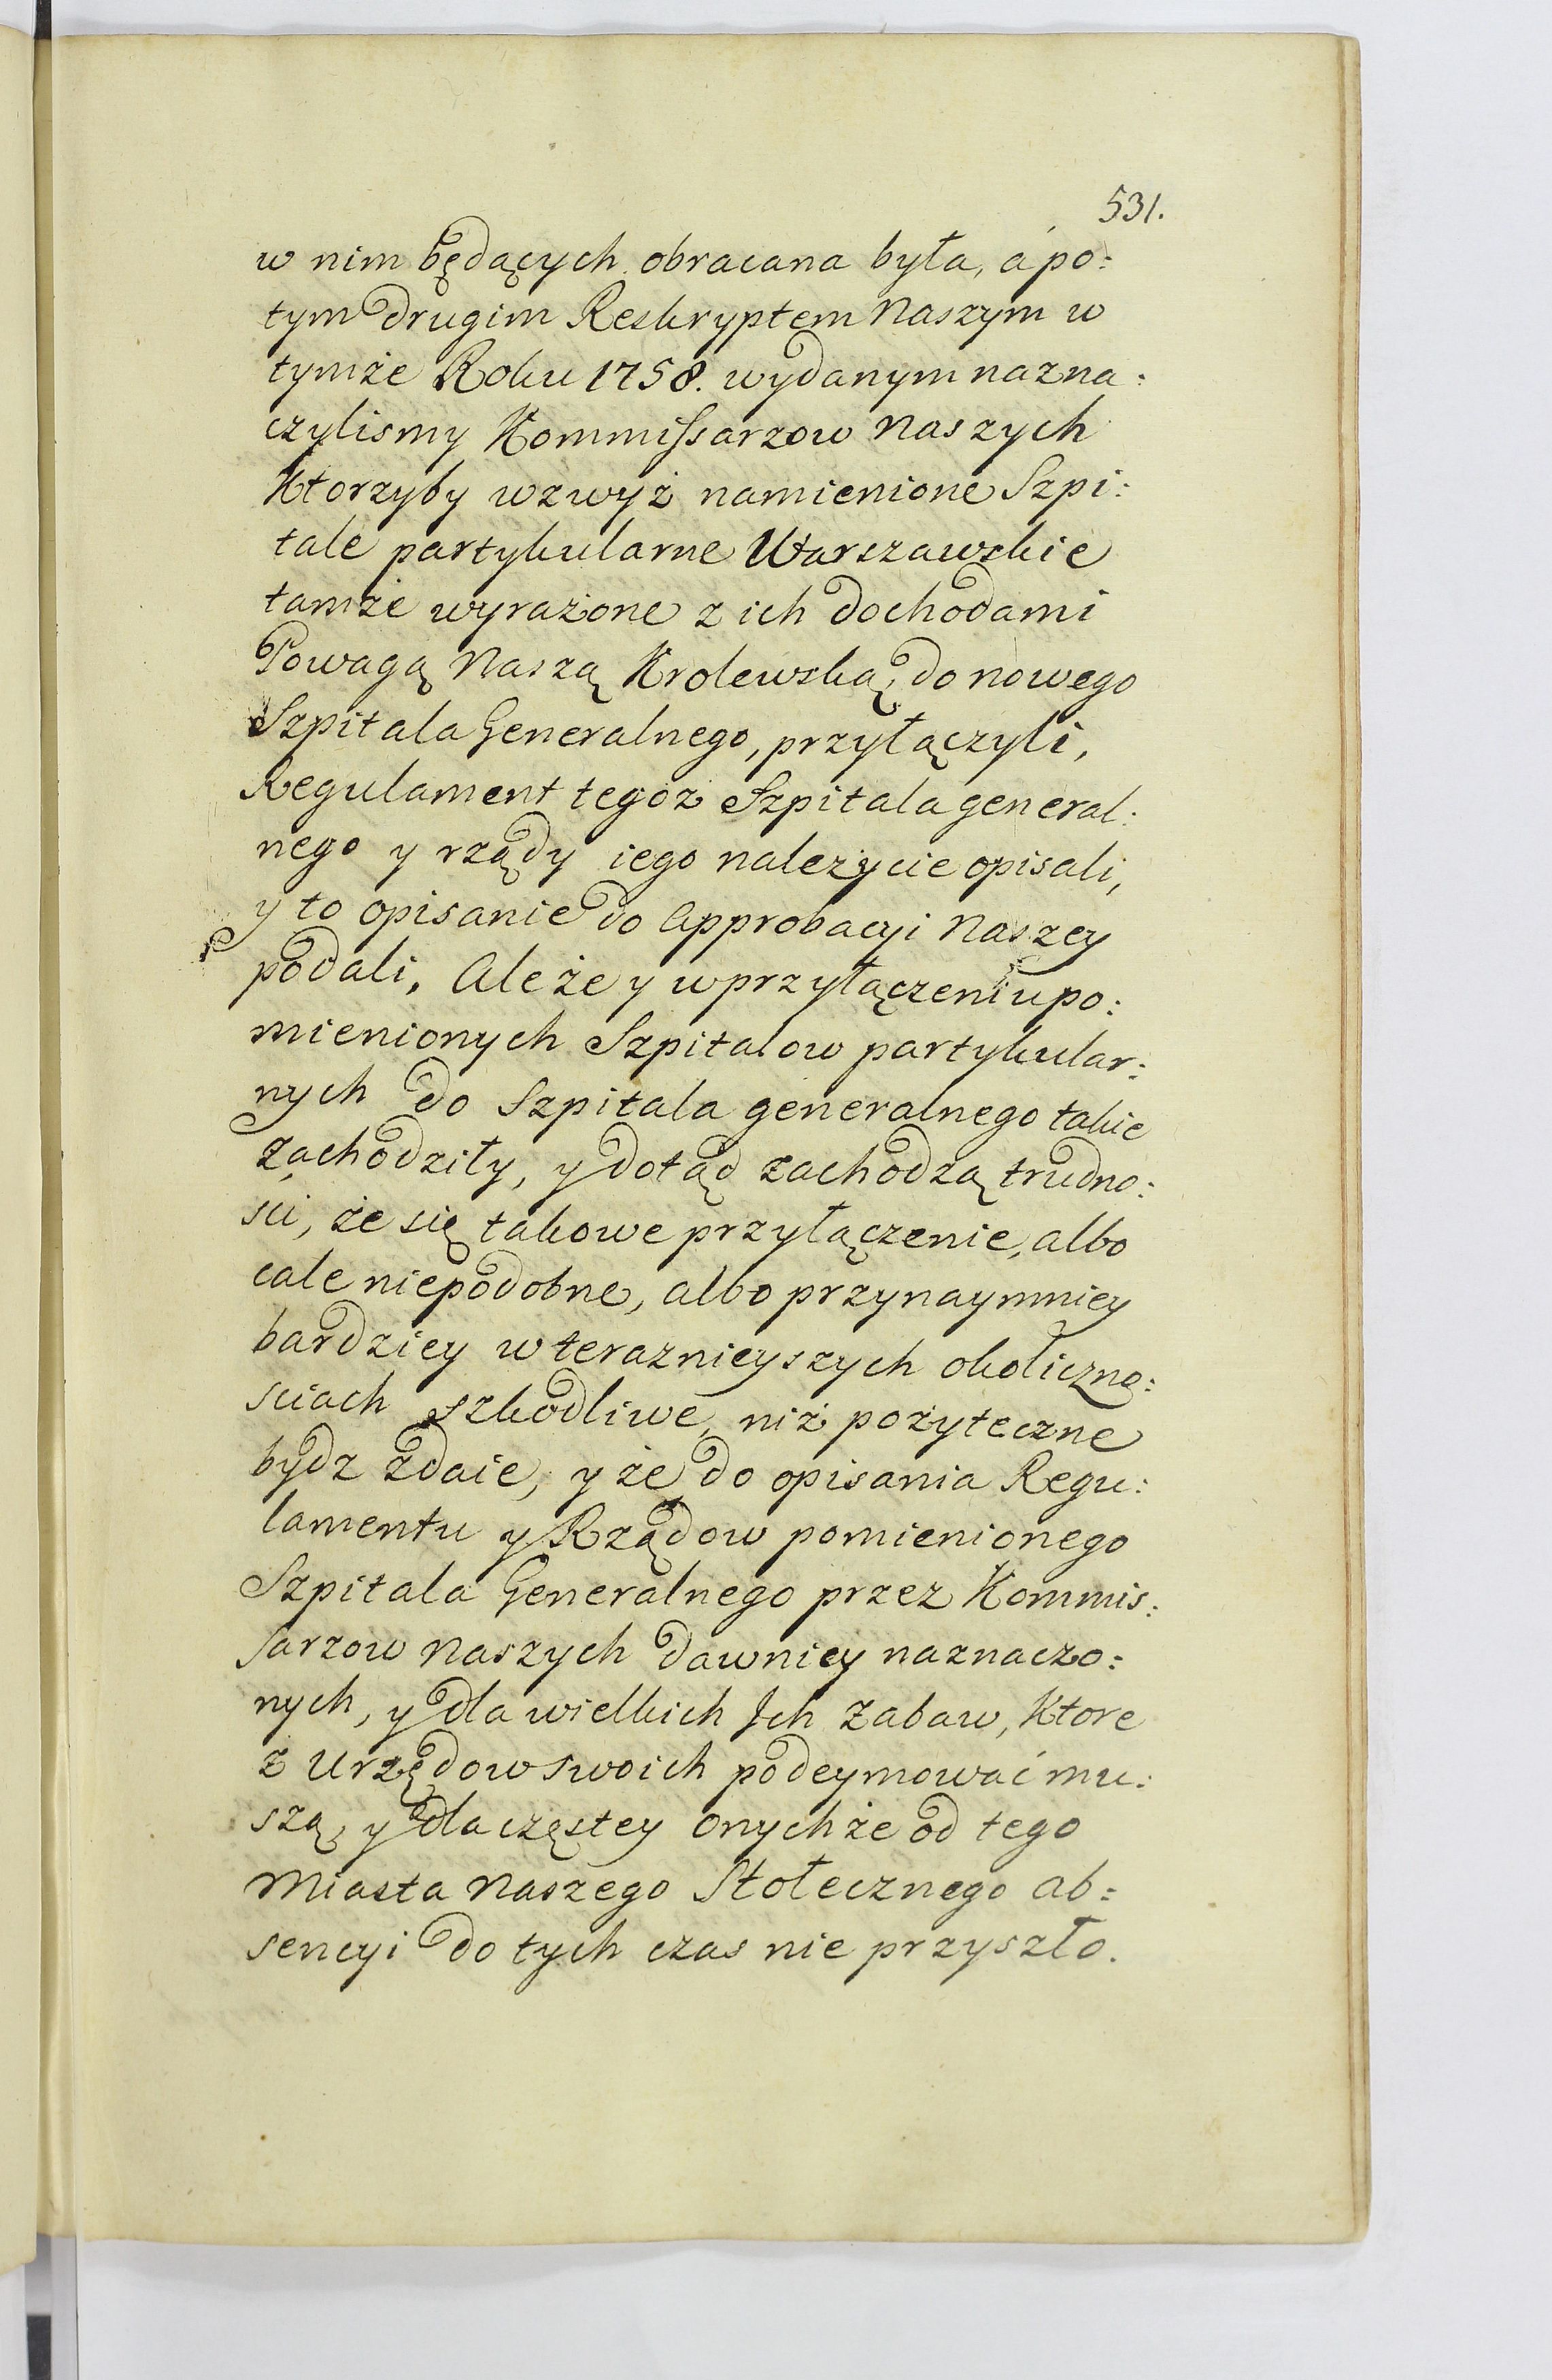 531.
w nim będących obracana była, á po:
tym drugim Reskryptem Naszym w
tymże Roku 1758. wydanym nazna:
czylismy Kommissarzow Naszych
Ktorzyby wzwyż namienione Szpi:
tale partykularne Warszawskie
tamże wyrażone z ich dochodami
Powagą Naszą Krolewską, do nowego
Szpitala Generalnego, przyłączyli,
Regulament tegoż Szpitala general:
nego y rządy iego należycie opisali,
y to opisanie do Approbacyi Naszey
podali, Ale że y w przyłączeniu po:
mienionych Szpitalow partykular:
nych do Szpitala generalnego takie
zachodziły, y dotąd zachodzą trudno:
sci, że się takowe przyłączenie, albo
cale niepodobne, albo przynaymniey
bardziey w teraznieyszych okoliczno:
sciach szkodliwe, niż pożyteczne
bydz zdaie, y że do opisania Regu:
lamentu y Rządow pomienionego
Szpitala Generalnego przez Kommis:
sarzow Naszych dawniey naznaczo:
nych, y dla wielkich Ich zabaw, Ktore
z Urzędow swoich podeymować mu:
szą, y dla częstey onychże od tego
Miasta Naszego Stołecznego ab:
sencyi do tych czas nie przyszło.